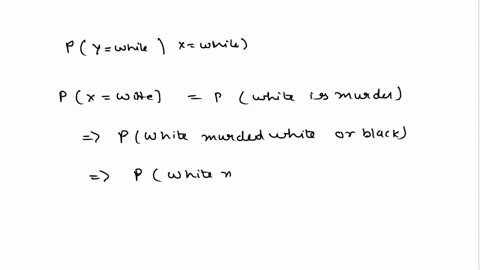 P( y = while ) x = while)
P( x = witte] = P ( white is murder)
=> P( white murded white or black)
=> P( white n